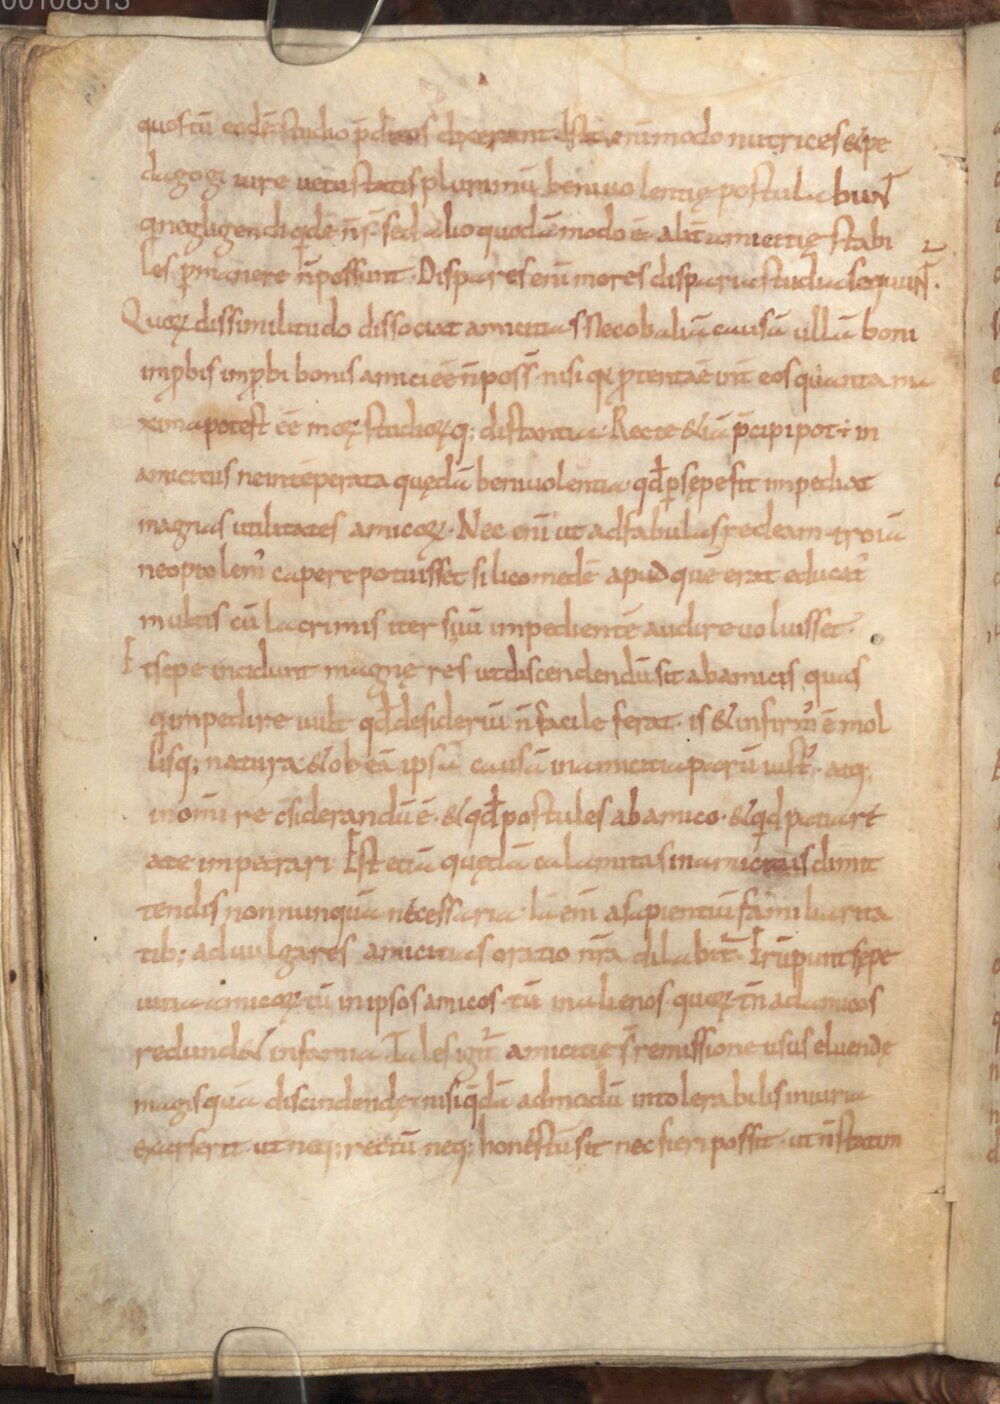 00108313
quos tū eodē studio p̄ditos dixerunt. Isto enī modo nutrices & pe
dagogi iure uetustatis plurimū beniuolentię postulabunt̄
qi negligendi qidē n̄ s̄ sed alio quodā modo ē. alit̄ amicitię stabi
les p̱manere n̄ possunt. Dispares enī mores disparia studia sequunt̄.
Quoꝝ dissimilitudo dissociat amicitias Nec ob aliā causā ullā boni
imp̱bis imp̱bi bonis amici eē n̄ poss̄. nisi qđ tenta ē int̄ eos quanta ma
xima potest eē moꝝ studioꝝq; distantia. Recte & iā p̄cipi pot÷ in
amicitiis ne intēperata quędā beniuolentia. qđ p̱sępe fit impediat
magnas utilitates amicoꝝ. Nec enī ut ad fabulas redeam. troiā
neoptolem᾽ capere potuisset si licomedē apud quē erat educat᾽
multis cū lacrimis iter suū impedientē audire uoluisset.
Et sepe incidunt magnę res ut discendendū sit ab amicis quas
qi impedire uult qđ desideriū n̄ facile ferat. is & infirm᾽ ē mol
lisq; natura. & ob eā ipsā causā in amicitia parū iust᾽. atq;
in omi re c̄siderandū ē. & qđ postules ab amico. & qid patiar
a te impetrari. Est etiā quędā calamitas in amicitiis dimit
tendis nonnunquā necessaria. iā enī a sapientiū familiarita
tib; ad uulgares amicitias oratio nr̄a dilabit̄. Erūpunt sępe
uitia amicoꝝ. tū in ipsos amicos. tū in alienos. quoꝝ tn̄ ad amicos
redund& infamia. Tales igit̄ amicitię s̄ remissione usus eluendę
magis quā discindendę. nisi qędā admodū intolerabilis iniuria
exarserit. ut neq; rectū neq; honestū sit nec fieri possit. ut n̄ statim